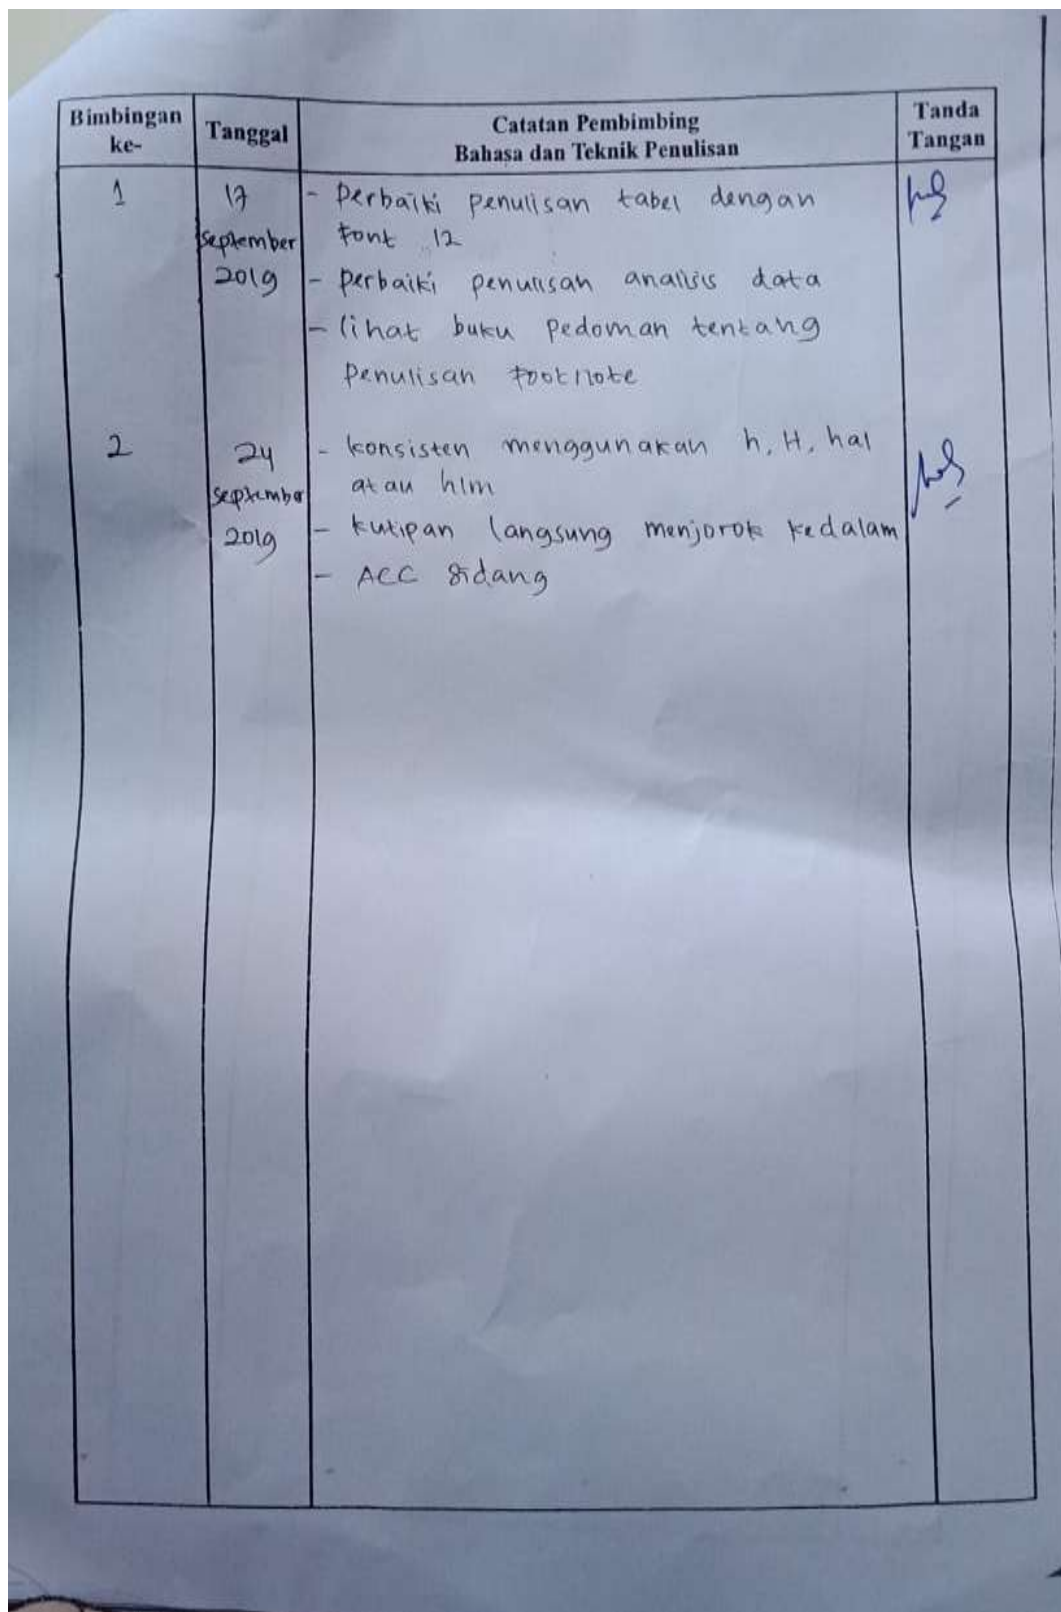 Bimbingan ke-
Tanggal
Catatan Pembimbing
Bahasa dan Teknik Penulisan
Tanda Tangan
1
17 September 2019
- Perbaiki penulisan tabel dengan
font 12
- perbaiki penulisan analisis data
- lihat buku pedoman tentang
penulisan footnote
2
24 September 2019
- konsisten menggunakan h, H, hal
atau hlm
- kutipan langsung menjorok kedalam
- ACC sidang